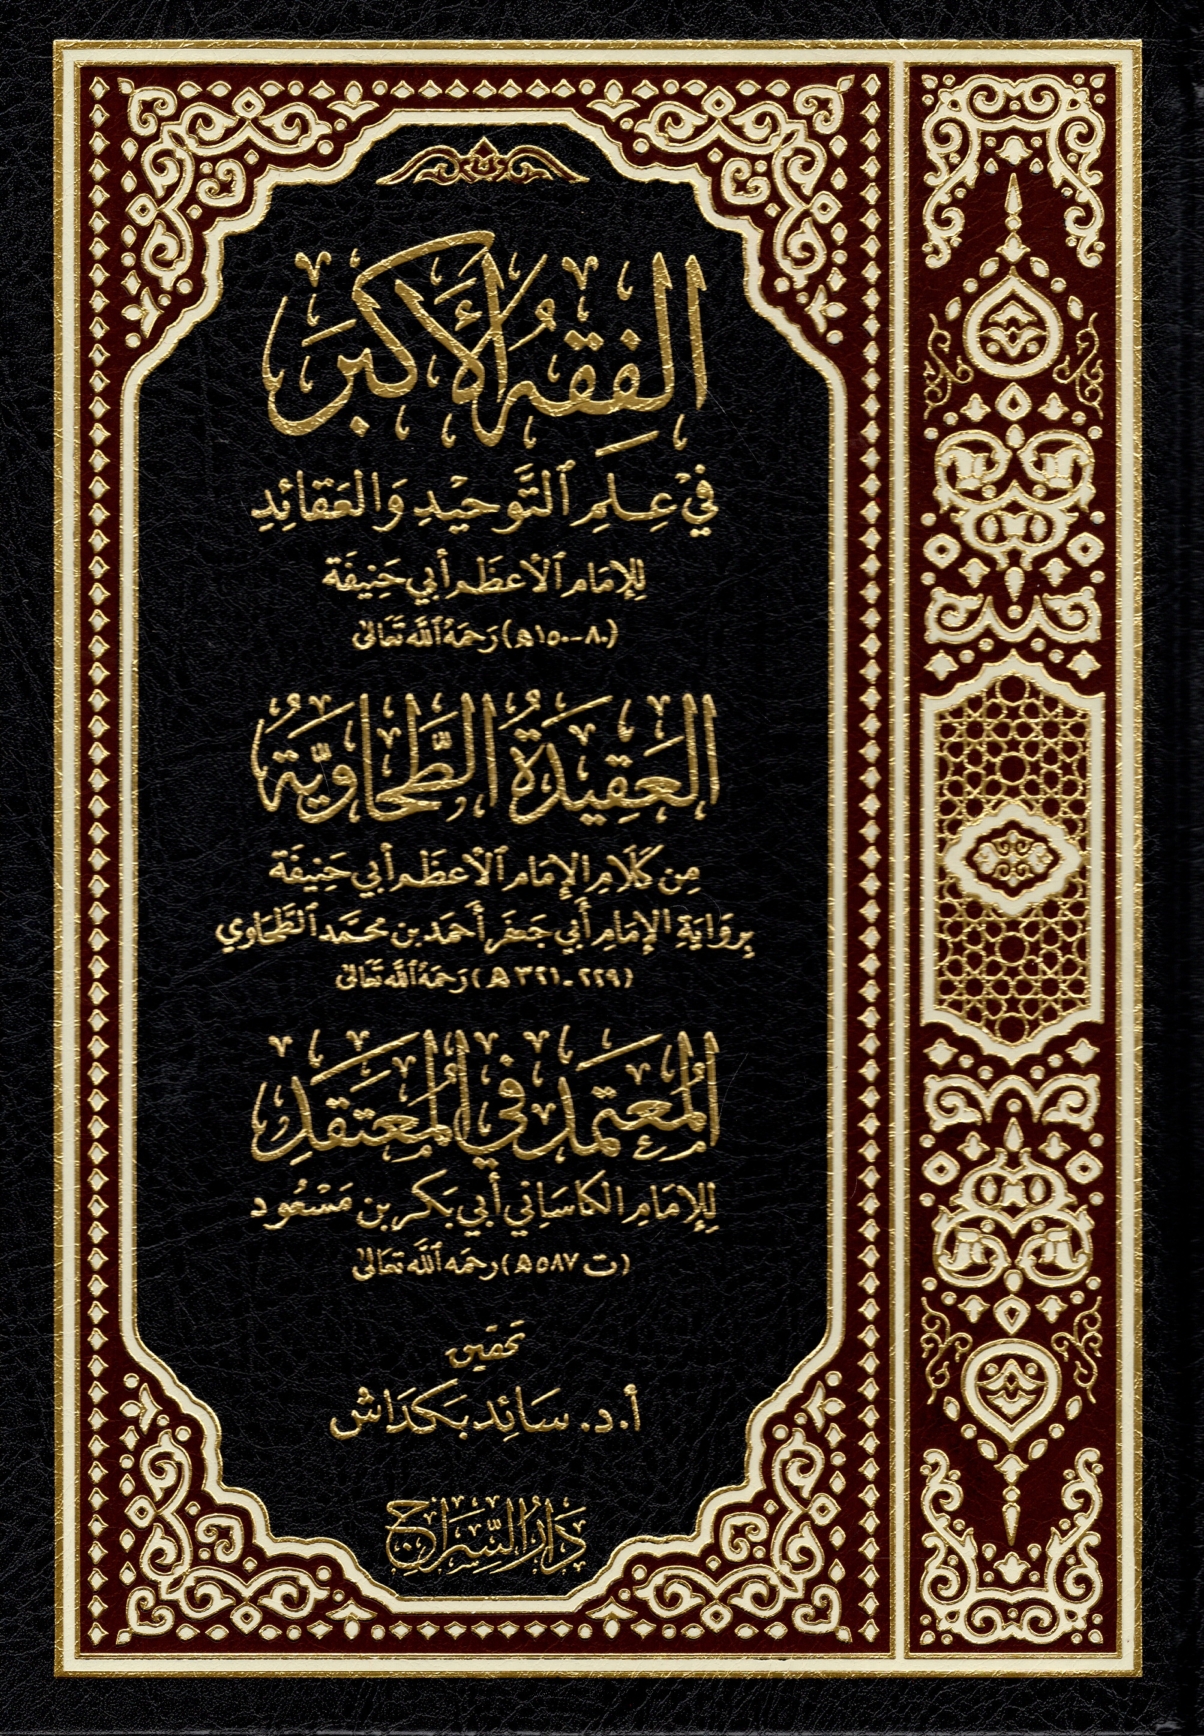 الفِقهُ الأَكبَر
فِي عِلمِ ٱلتَّوحِيْدِ وَالعَقَائِدِ
لِلإمَامِ ٱلأعظَمِ أبي حَنِيفَة
(٨٠-١٥٠ه) رَحمَهُ ٱللَّه تَعَالىٰ
العَقِيدَةُ الطَّحَاوِيَّةُ
مِن كَلَامِ الإمَامِ ٱلأعظَمِ أبي حَنِيفَة
بِروَايَةِ الإمَامِ أَبي جَعفَر أَحمَد بن محمَّد ٱلطَّحَاوي
(٢٢٩-٣٢١ه) رَحمَهُ ٱللَّه تعَالىٰ
المُعتَمَد في المُعتَقَدِ
لِلإمَامِ الكاسَانِي أبي بَكر بن مَسْعُود
(ت ٥٨٧ه) رحمَه ٱللَّه تعَالىٰ
تحقيق
أ.د. سَائِد بَكدَاش
دَارُ السِّرَاج